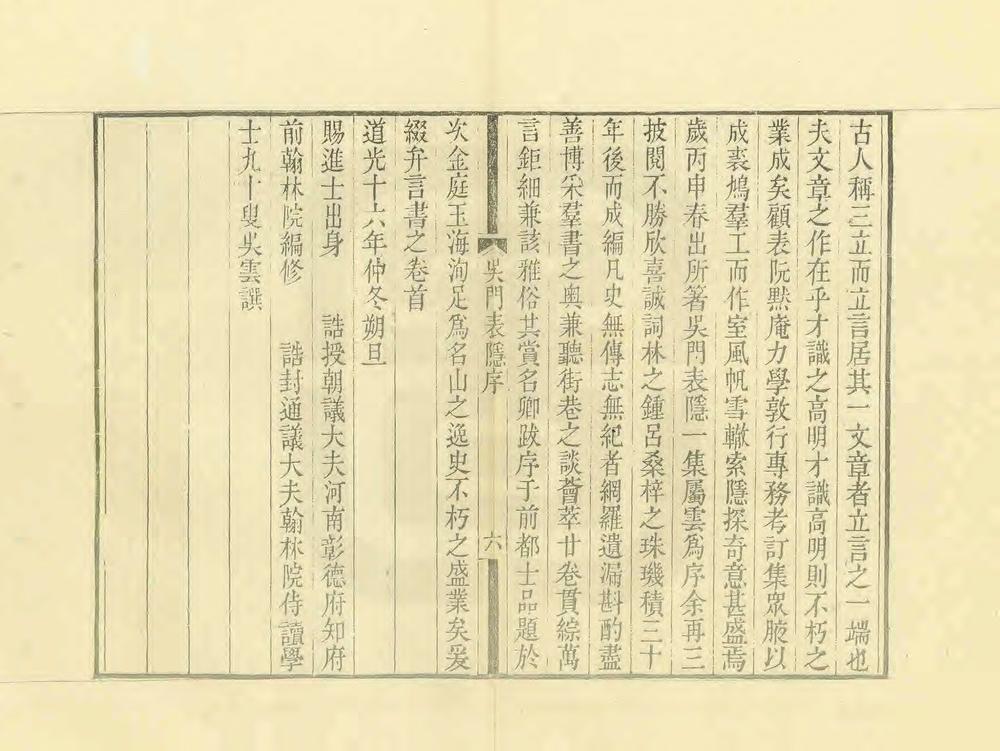 古人稱三立而立言居其一文章者立言之一端也
夫文章之作在乎才識之高明才識高明則不朽之
業成矣顧表阮默庵力學敦行專務考訂集眾腋以
成裘鳩羣工而作室風帆雪轍索隱探奇意甚盛焉
歲丙申春出所箸吳門表隱一集屬雲爲序余再三
披閱不勝欣喜誠詞林之鍾呂桑梓之珠璣積三十
年後而成編凡史無傳志無紀者網羅遺漏斟酌盡
善博采羣書之奥兼聽街巷之談薈萃廿卷貫綜萬
言鉅細兼該雅俗其賞名卿跋序于前都士品題於
吳門表隱序 六
次金庭玉海洵足爲名山之逸史不朽之盛業矣爰
綴弁言書之卷首
道光十六年仲冬朔旦
賜進士出身 誥授朝議大夫河南彰德府知府
前翰林院編修 誥封通議大夫翰林院侍讀學
士九十叟吳雲譔